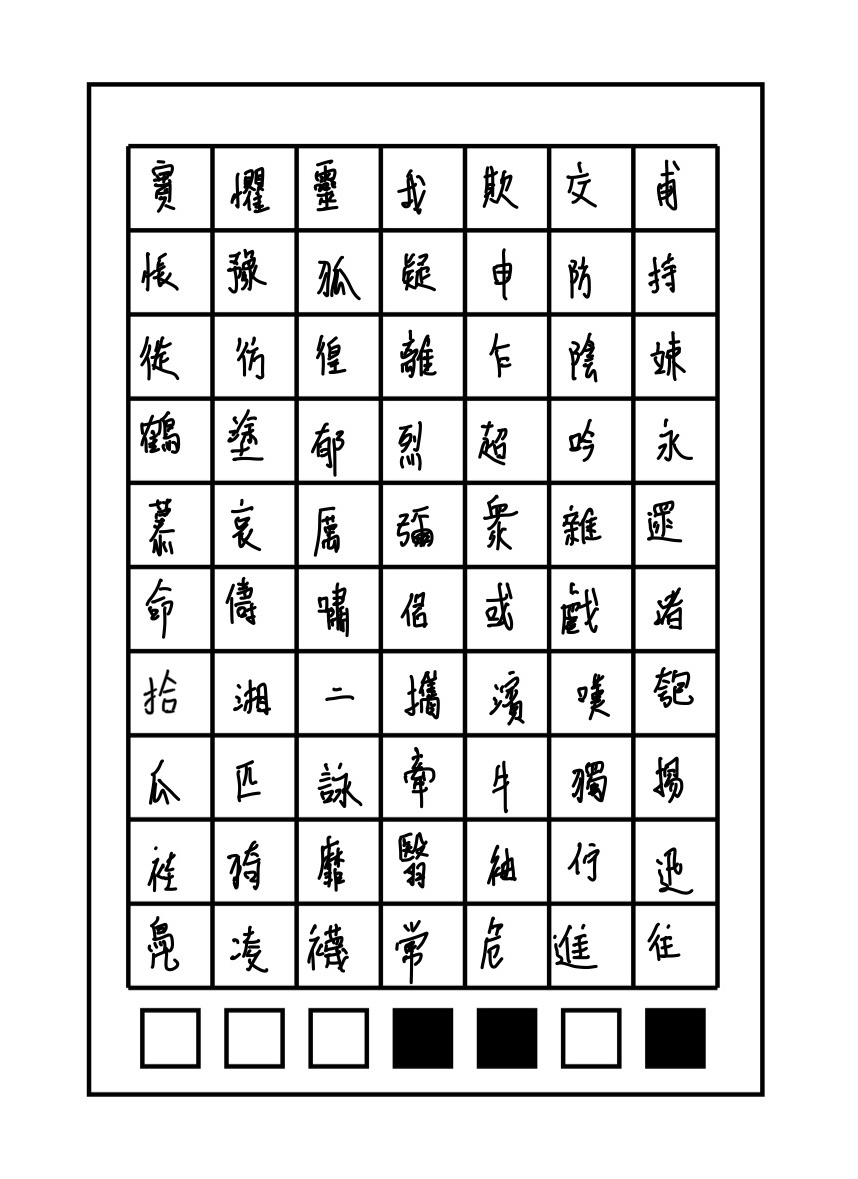 實懼靈我欺交甫
悵豫狐疑申防持
徙彷徨離乍陰竦
鶴塗郁烈超吟永
慕哀厲彌衆雜遝
命儔嘯侶或戲渚
拾湘二攜濱嘆匏
瓜匹詠牽牛獨揚
袿猗靡翳袖佇迅
鳧凌襪常危進往